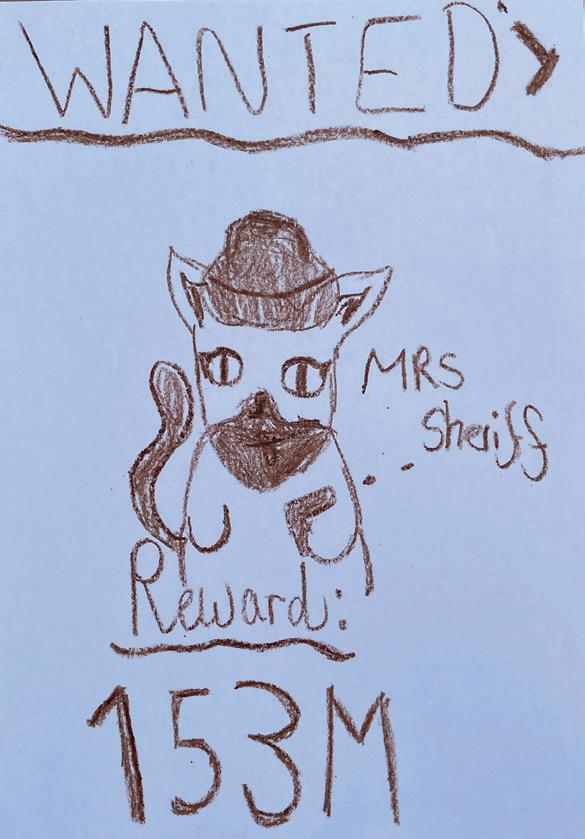 WANTED
MRS
Sheriff
Reward:
153M